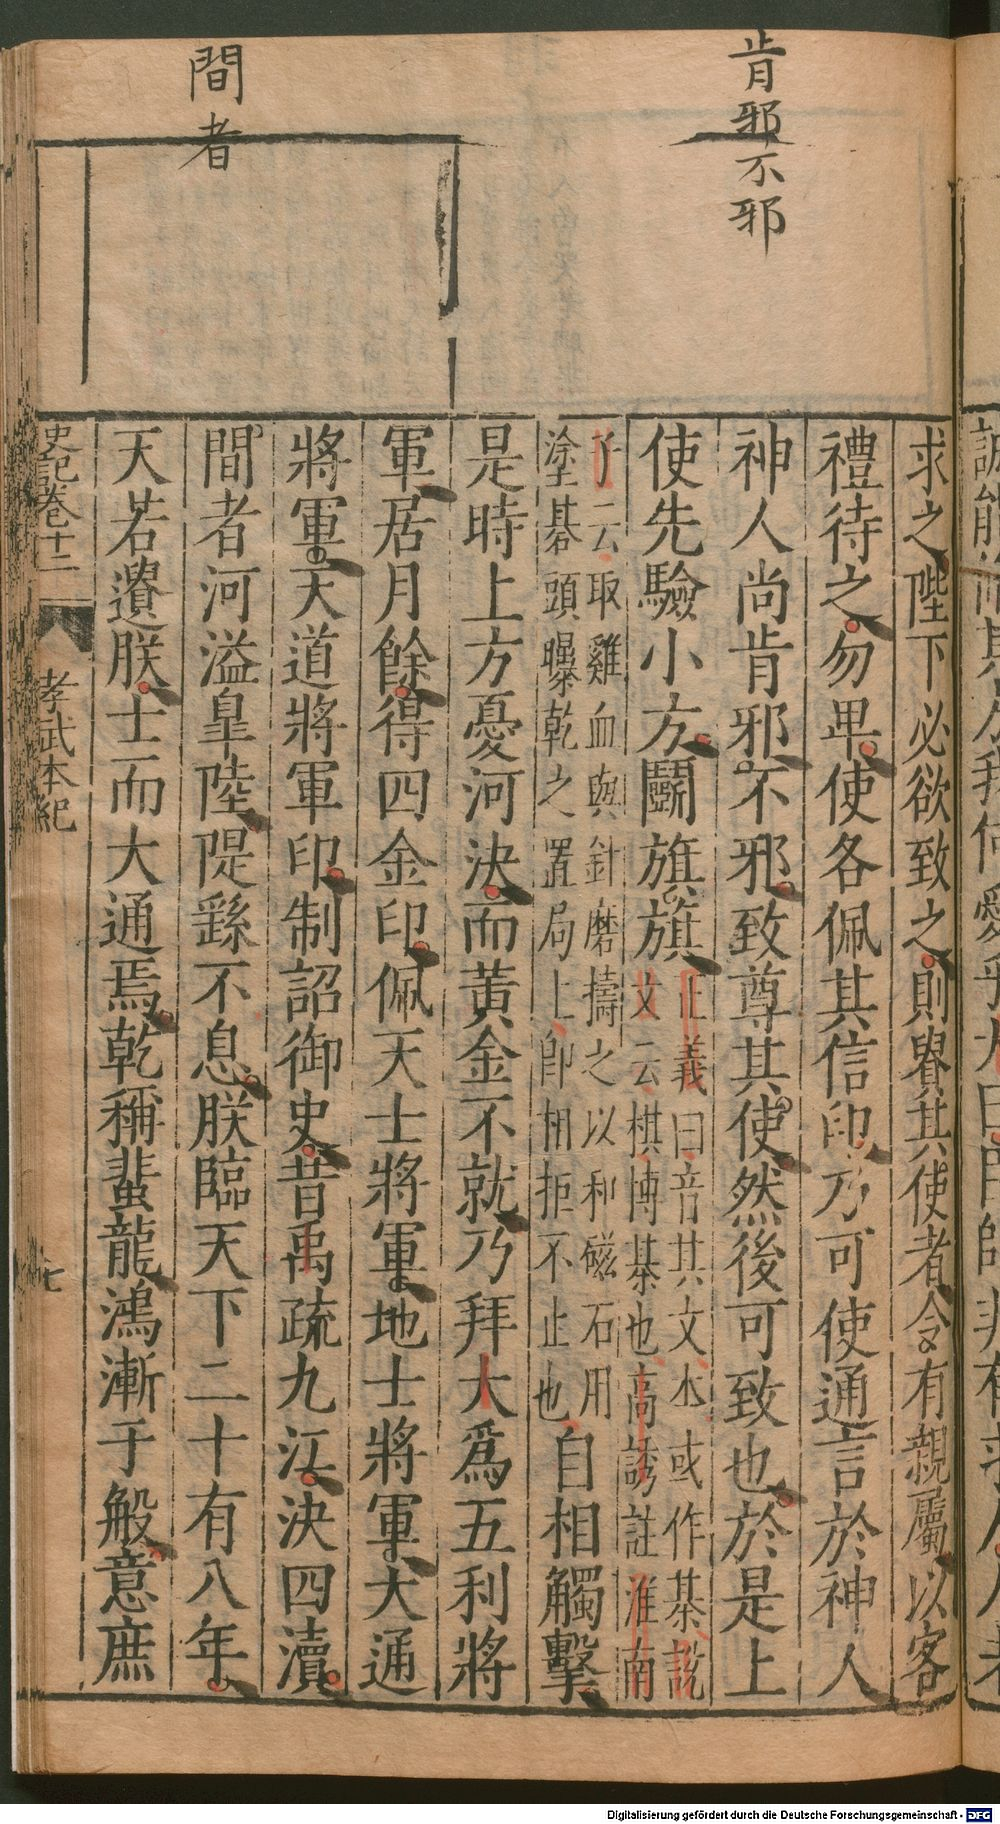 肯邪不邪
間者
求之陛下必欲致之則貴其使者令有親屬以客
禮待之勿卑使各佩其信印乃可使通言於神人
神人尚肯邪不邪致尊其使然後可致也於是上
使先驗小方鬭旗旗
正義曰音其文本或作棊說
文云棋博棊也高誘註淮南
子云取雞血與針磨擣之以和磁石用
塗棊頭曝乾之置局上卽相拒不止也
自相觸擊
是時上方憂河決而黃金不就乃拜大爲五利將
軍居月餘得四金印佩天士將軍地士將軍大通
將軍天道將軍印制詔御史昔禹疏九江決四瀆
間者河溢皇陸隄繇不息朕臨天下二十有八年
天若遺朕士而大通焉乾稱蜚龍鴻漸于般意庶
史記卷十二
孝武本紀
七
Digitalisierung gefördert durch die Deutsche Forschungsgemeinschaft - DFG